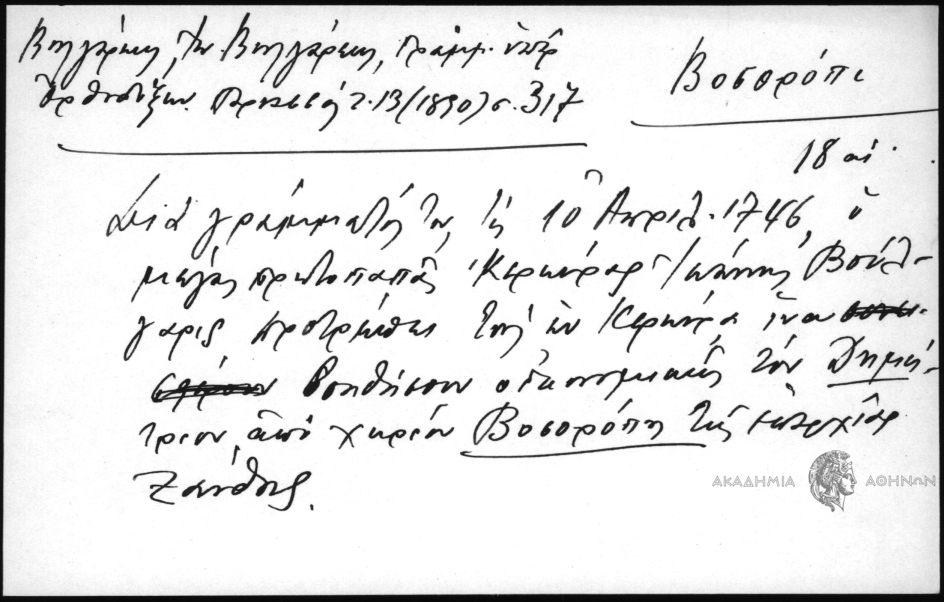 Βουλγάρεως, Ἰω. Βουλγάρεως, Γράμμ. ὑπὲρ
Ὀρθοδόξων. Παρνασσός τ. 13 (1890) σ. 317
Βοσορόπι
18 αἰ.
Διὰ γράμματός του, τῆς 10 Ἀπριλ. 1746, ὁ
μέγας πρωτοπαπᾶς Κερκύρας Ἰωάννης Βούλ-
γαρις προτρέπει τοὺς ἐν Κερκύρᾳ ἵνα
βοηθήσουν οἰκονομικῶς τὸν Δημή-
τριον ἀπὸ χωρίον Βοσορόπι τῆς ἐπαρχίας
Ξάνθης.
ΑΚΑΔΗΜΙΑ ΑΘΗΝΩΝ